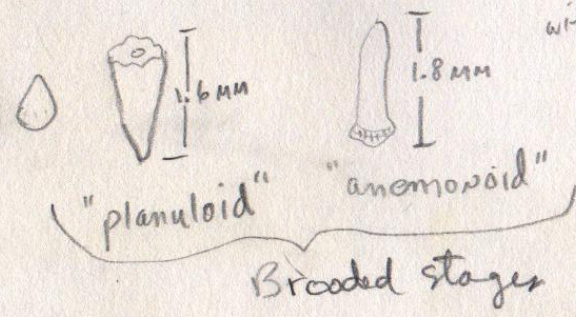 wi
1.6 MM
1.8 MM
"planuloid"
"anemonoid"
Brooded stages